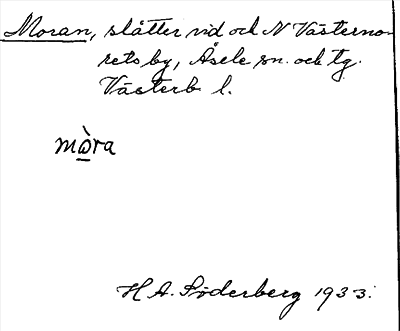 Moran, slåtter vid och N Västerno-
rets by, Åsele sn. och tg.
Västerb l.
mὼ̲ra
H A. Söderberg 1933.